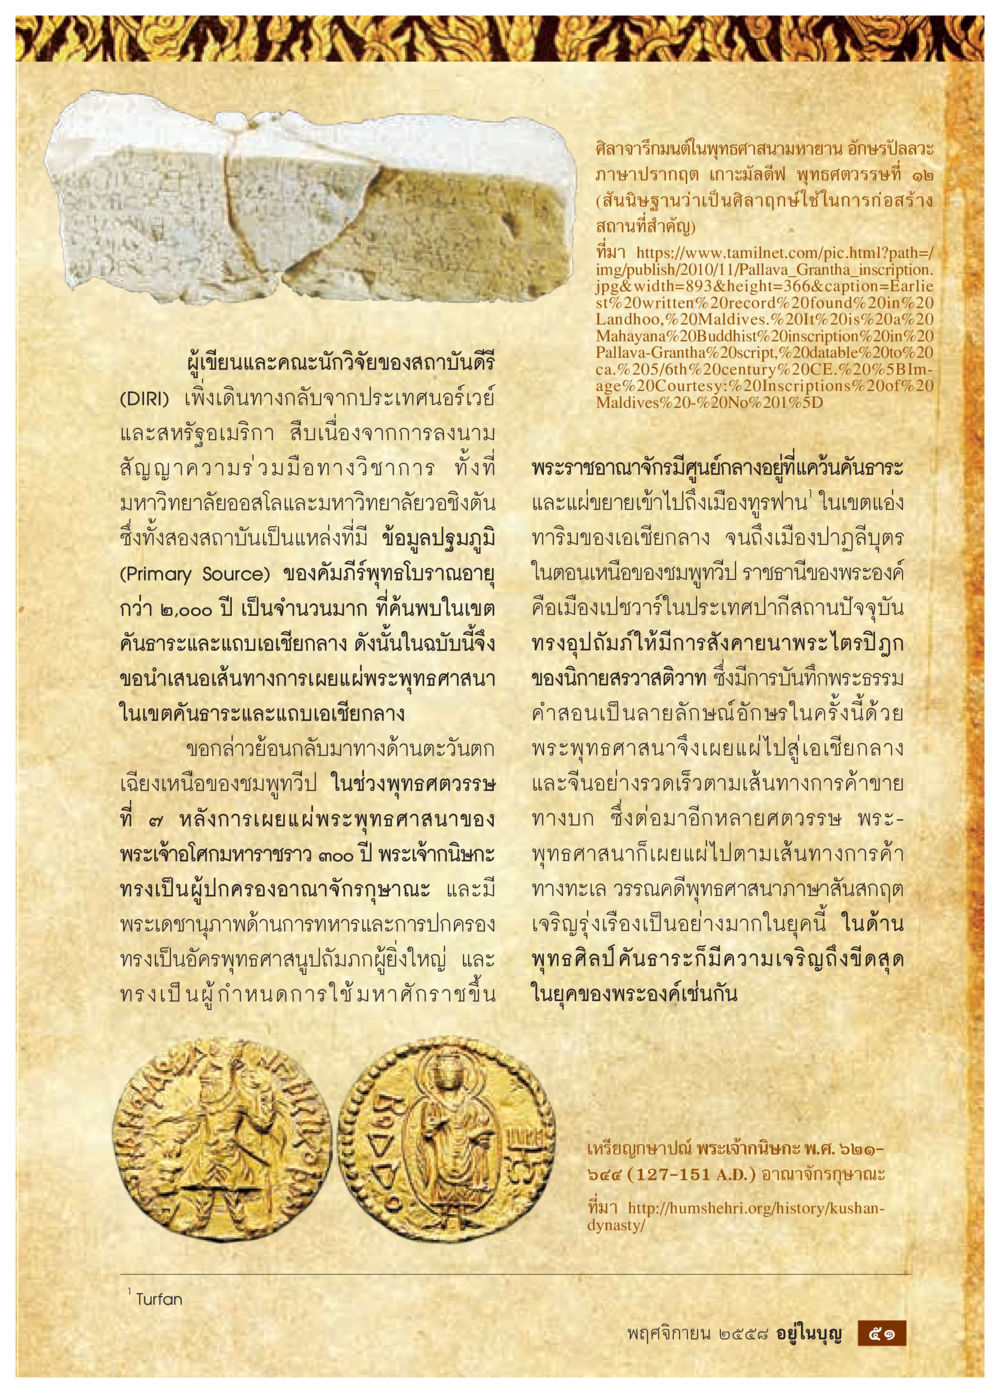 ศิลาจารึกมนต์ในพุทธศาสนามหายาน อักษรปัลลวะ
ภาษาปรากฤต เกาะมัลดีฟ พุทธศตวรรษที่ ๑๒
(สันนิษฐานว่าเป็นศิลาฤกษ์ใช้ในการก่อสร้าง
สถานที่สำคัญ)
ที่มา https://www.tamilnet.com/pic.html?path=/
img/publish/2010/11/Pallava_Grantha_inscription.
jpg&width=893&height=366&caption=Earlie
st%20written%20record%20found%20in%20
Landhoo,%20Maldives.%20It%20is%20a%20
Mahayana%20Buddhist%20inscription%20in%20
Pallava-Grantha%20script,%20datable%20to%20
ca.%205/6th%20century%20CE.%20%5BIm-
age%20Courtesy:%20Inscriptions%20of%20
Maldives%20-%20No%201%5D
ผู้เขียนและคณะนักวิจัยของสถาบันดีรี
(DIRI) เพิ่งเดินทางกลับจากประเทศนอร์เวย์
และสหรัฐอเมริกา สืบเนื่องจากการลงนาม
สัญญาความร่วมมือทางวิชาการ ทั้งที่
มหาวิทยาลัยออสโลและมหาวิทยาลัยวอชิงตัน
ซึ่งทั้งสองสถาบันเป็นแหล่งที่มี ข้อมูลปฐมภูมิ
(Primary Source) ของคัมภีร์พุทธโบราณอายุ
กว่า ๒,๐๐๐ ปี เป็นจำนวนมาก ที่ค้นพบในเขต
คันธาระและแถบเอเชียกลาง ดังนั้นในฉบับนี้จึง
ขอนำเสนอเส้นทางการเผยแผ่พระพุทธศาสนา
ในเขตคันธาระและแถบเอเชียกลาง
ขอกล่าวย้อนกลับมาทางด้านตะวันตก
เฉียงเหนือของชมพูทวีป ในช่วงพุทธศตวรรษ
ที่ ๗ หลังการเผยแผ่พระพุทธศาสนาของ
พระเจ้าอโศกมหาราชราว ๓๐๐ ปี พระเจ้ากนิษกะ
ทรงเป็นผู้ปกครองอาณาจักรกุษาณะ และมี
พระเดชานุภาพด้านการทหารและการปกครอง
ทรงเป็นอัครพุทธศาสนูปถัมภกผู้ยิ่งใหญ่ และ
ทรงเป็นผู้กำหนดการใช้มหาศักราชขึ้น
พระราชอาณาจักรมีศูนย์กลางอยู่ที่แคว้นคันธาระ
และแผ่ขยายเข้าไปถึงเมืองทูรฟาน¹ ในเขตแอ่ง
ทาริมของเอเชียกลาง จนถึงเมืองปาฏลีบุตร
ในตอนเหนือของชมพูทวีป ราชธานีของพระองค์
คือเมืองเปชวาร์ในประเทศปากีสถานปัจจุบัน
ทรงอุปถัมภ์ให้มีการสังคายนาพระไตรปิฎก
ของนิกายสรวาสติวาท ซึ่งมีการบันทึกพระธรรม
คำสอนเป็นลายลักษณ์อักษรในครั้งนี้ด้วย
พระพุทธศาสนาจึงเผยแผ่ไปสู่เอเชียกลาง
และจีนอย่างรวดเร็วตามเส้นทางการค้าขาย
ทางบก ซึ่งต่อมาอีกหลายศตวรรษ พระ-
พุทธศาสนาก็เผยแผ่ไปตามเส้นทางการค้า
ทางทะเล วรรณคดีพุทธศาสนาภาษาสันสกฤต
เจริญรุ่งเรืองเป็นอย่างมากในยุคนี้ ในด้าน
พุทธศิลป์คันธาระก็มีความเจริญถึงขีดสุด
ในยุคของพระองค์เช่นกัน
เหรียญกษาปณ์ พระเจ้ากนิษกะ พ.ศ. ๖๒๑-
๖๔๔ (127-151 A.D.) อาณาจักรกุษาณะ
ที่มา http://humshehri.org/history/kushan-
dynasty/
¹ Turfan
พฤศจิกายน ๒๕๕๘ อยู่ในบุญ ๕๑